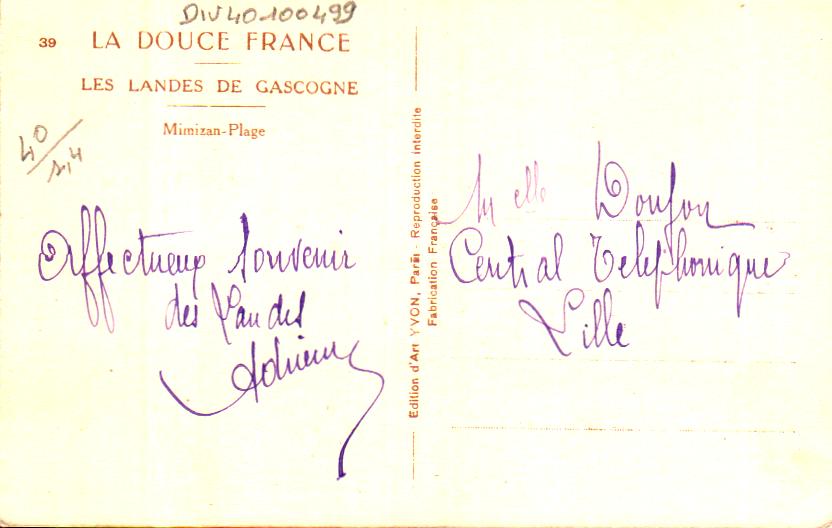 DIV40100499
39 LA DOUCE FRANCE
LES LANDES DE GASCOGNE
Mimizan-Plage
40
Affectueux Souvenir
des Landes
Edition d'Art YVON, Paris - Reproduction interdite
Fabrication Française
Melle
Central Telephonique
Lille